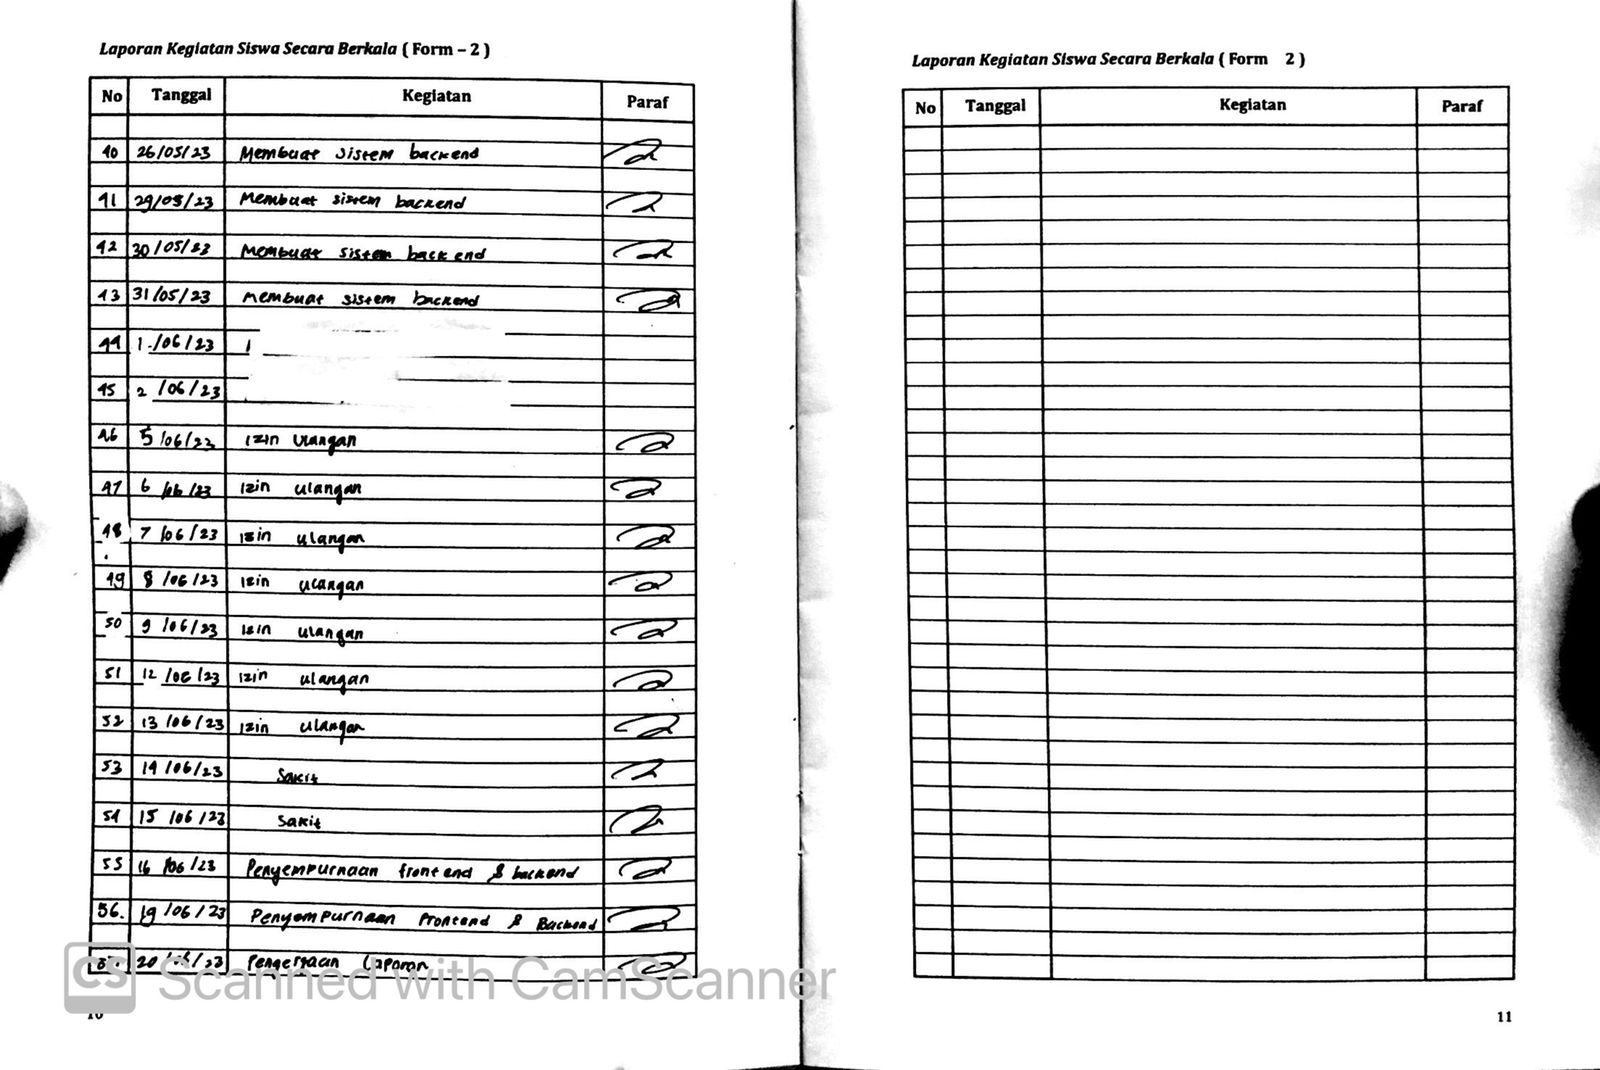 Laporan Kegiatan Siswa Secara Berkala ( Form – 2 )
No Tanggal Kegiatan Paraf
40 26/05/23 Membuat sistem backend
41 29/05/23 Membuat sistem backend
42 30/05/23 Membuat sistem backend
43 31/05/23 Membuat sistem backend
44 1/06/23
45 2/06/23
46 5/06/23 izin ulangan
47 6/06/23 izin ulangan
48 7/06/23 izin ulangan
49 8/06/23 izin ulangan
50 9/06/23 izin ulangan
51 12/06/23 izin ulangan
52 13/06/23 izin ulangan
53 14/06/23 Sakit
54 15/06/23 Sakit
55 16/06/23 Penyempurnaan frontend & backend
56. 19/06/23 Penyempurnaan Frontend & Backend
57 20/06/23 Pengerjaan Laporan
CS Scanned with CamScanner
10
Laporan Kegiatan Siswa Secara Berkala ( Form 2 )
No Tanggal Kegiatan Paraf
11